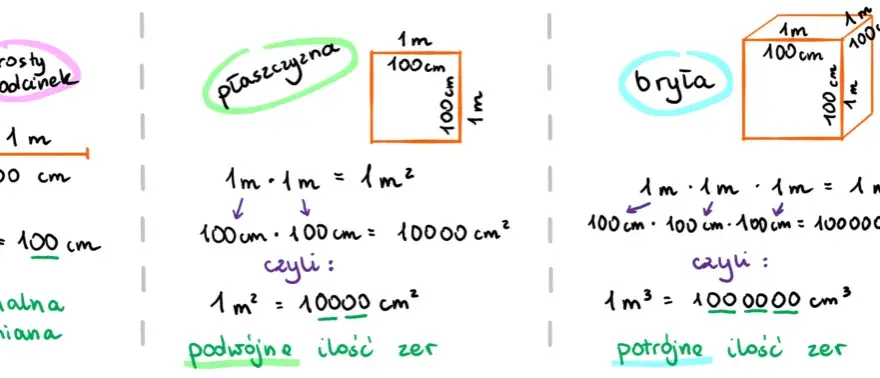 rosty
odcinek
1 m
00 cm
= 100 cm
alna
iana
płaszczyzna
1m
100cm
100cm
1m
1m · 1m = 1m²
100cm · 100cm = 10000 cm²
czyli:
1m² = 10000 cm²
podwójna ilość zer
bryła
1m
100cm
1m
100c
100cm
1m
1m · 1m · 1m = 1m
100cm · 100cm · 100cm = 100000
czyli:
1m³ = 1000000 cm³
potrójna ilość zer